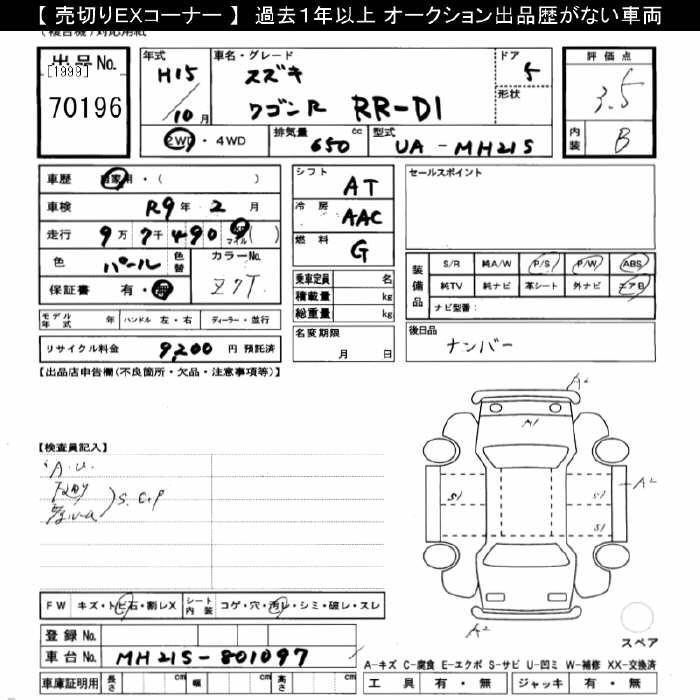 【 売切りEXコーナー 】 過去1年以上 オークション出品歴がない車両
出品No.
[1999]
70196
年式
H15/10月
車名・グレード
スズキ
ワゴンR RR-DI
ドア
5
形状
評価点
3.5
内装
B
2WD・4WD
排気量 650 cc
型式 UA - MH21S
車歴 自家用・( )
車検 R9年 2月
走行 9万 7千 490 マイル( )
色 パール 色替
カラーNo. Z7T
保証書 有・無
モデル年式 年 ハンドル 左・右 ディーラー・並行
リサイクル料金 9,200 円 預託済
シフト AT
冷房 AAC
燃料 G
乗車定員 名
積載量 kg
総重量 kg
名変期限
月 日
セールスポイント
装備品
S/R 純A/W P/S P/W ABS
純TV 純ナビ 革シート 外ナビ エアB
ナビ型番:
後日品
ナンバー
【出品店申告欄(不良箇所・欠品・注意事項等)】
【検査員記入】
A.U.
A2
A2
A2
S1
S1
S1
FW キズ・トビ石・割レX
シート内装 コゲ・穴・汚レ・シミ・破レ・スレ
登録No.
車台No. MH21S-801097
車庫証明用 長さ cm 幅 cm 高さ cm
スペア
A-キズ C-腐食 E-エクボ S-サビ U-凹ミ W-補修 XX-交換済
工具 有・無 ジャッキ 有・無